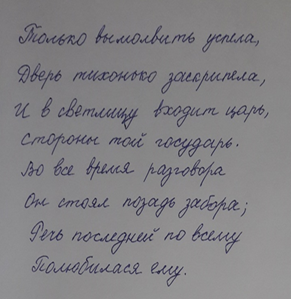 Только вымолвить успела,
Дверь тихонько заскрипела,
И в светлицу входит царь,
Стороны той государь.
Во все время разговора
Он стоял позадь забора;
Речь последней по всему
Полюбилася ему.